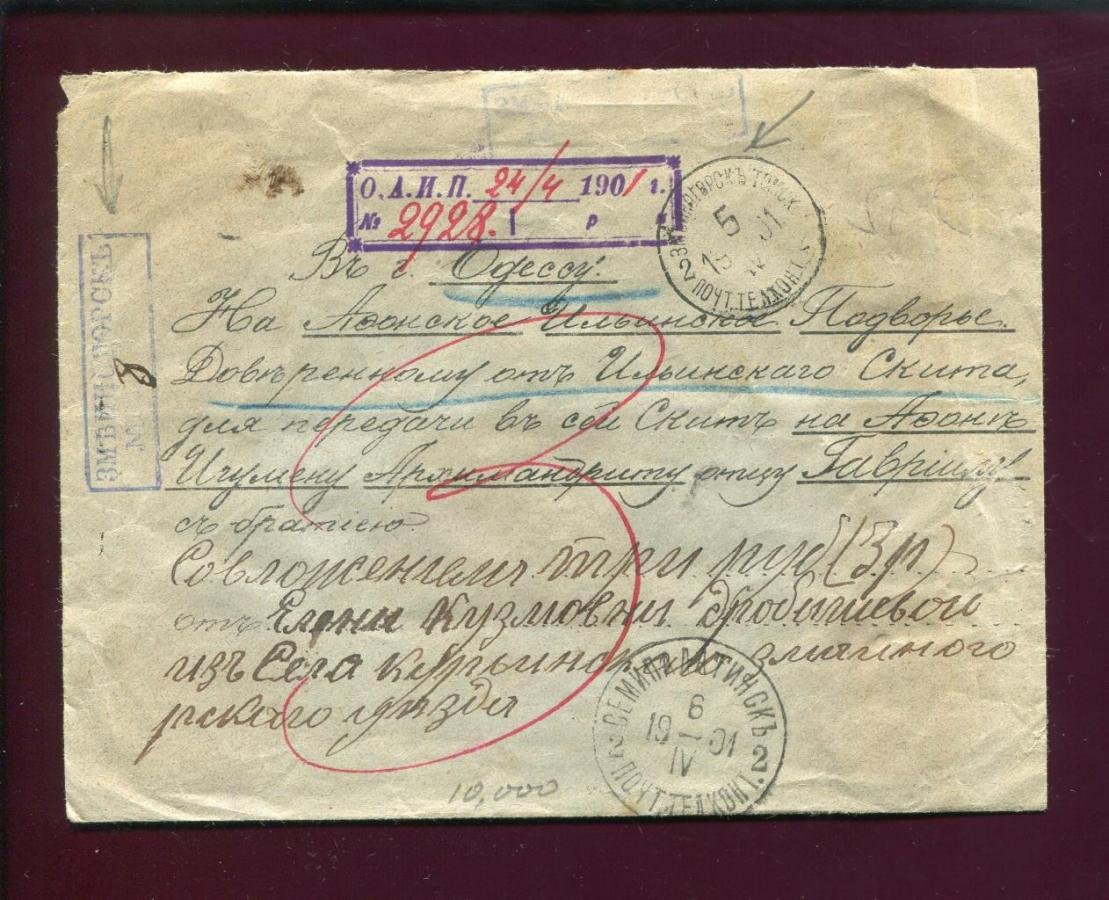 О.А.И.П. 24/4 1901 г.
№ 2928. р к
ЗМѢИНОГОРСКЪ ТОМСК
5
19 01
IV
2 ПОЧТ.ТЕЛ.КОНТ. 2
ЗМѢИНОГОРСКЪ
№ 8
Въ г. Одессу.
На Аѳонское Ильинское Подворье.
Довѣренному отъ Ильинскаго Скита,
для передачи въ сей Скитъ на Аѳонѣ
Игумену Архимандриту отцу Гавріилу
съ братіею.
Совложенiемъ три руб (3 р)
отъ Елени Кузмовни Дробишевой
изъ Села Курьинск змѣиного
рского уѣзда
3
СЕМИПАЛАТИНСКЪ
6
19 01
IV
2 ПОЧТ.ТЕЛ.КОНТ. 2
10,000